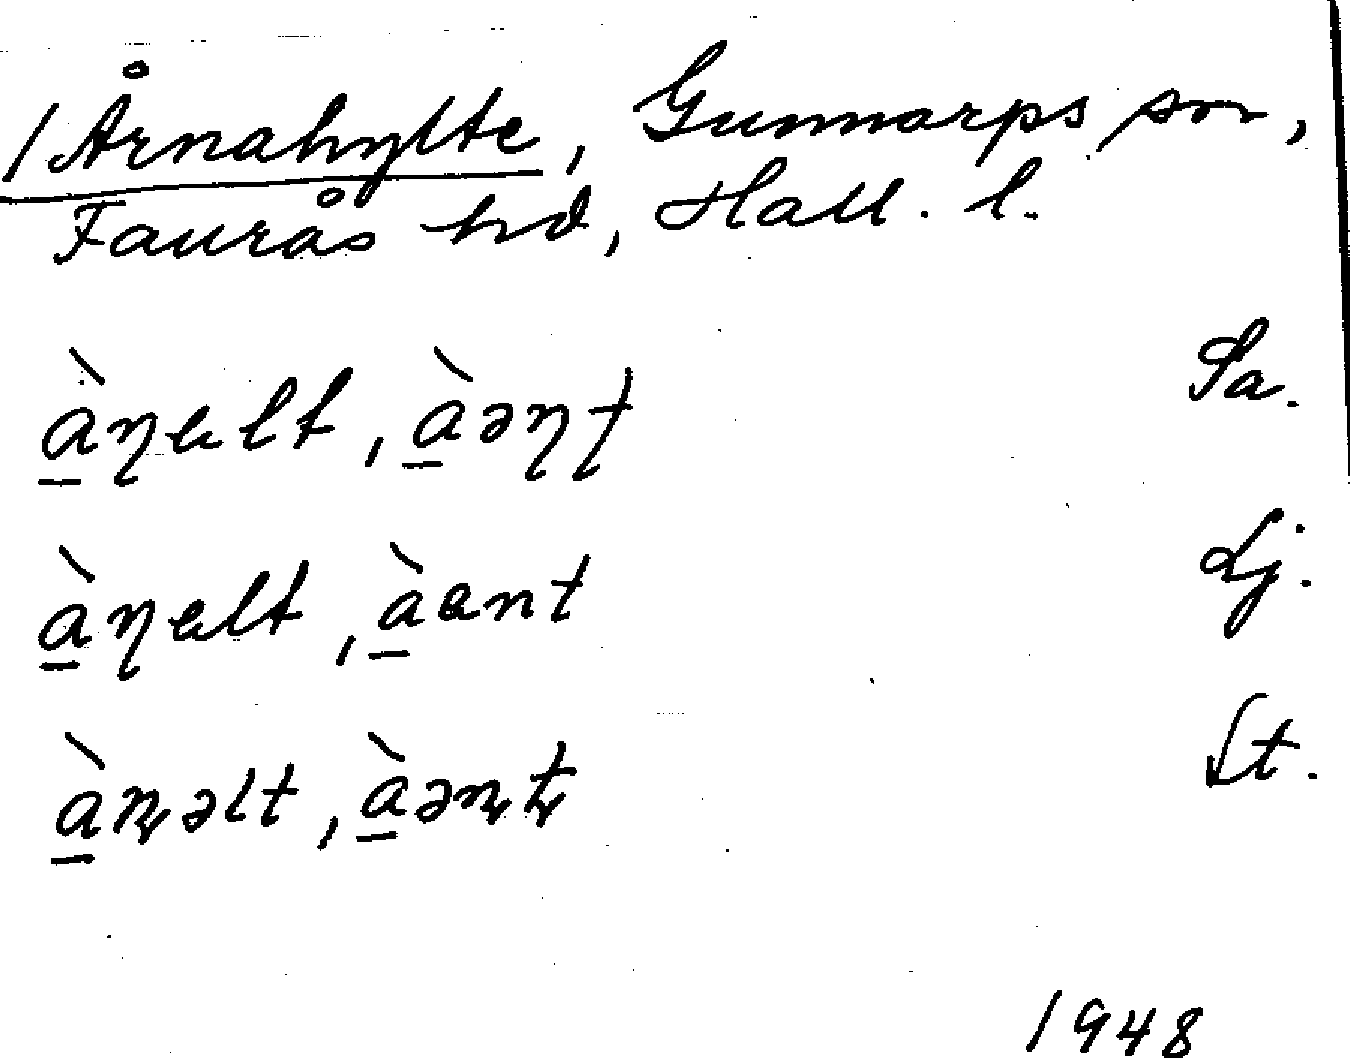 /Årnahylte, Gunnarps sn,
Faurås hd, Hall. l.
à̱ɳɐlt, à̱əɳʈ Sa.
à̱ɳɐlt, à̱ɐnt Lj.
à̱nəlt, à̱ənt St.
1948